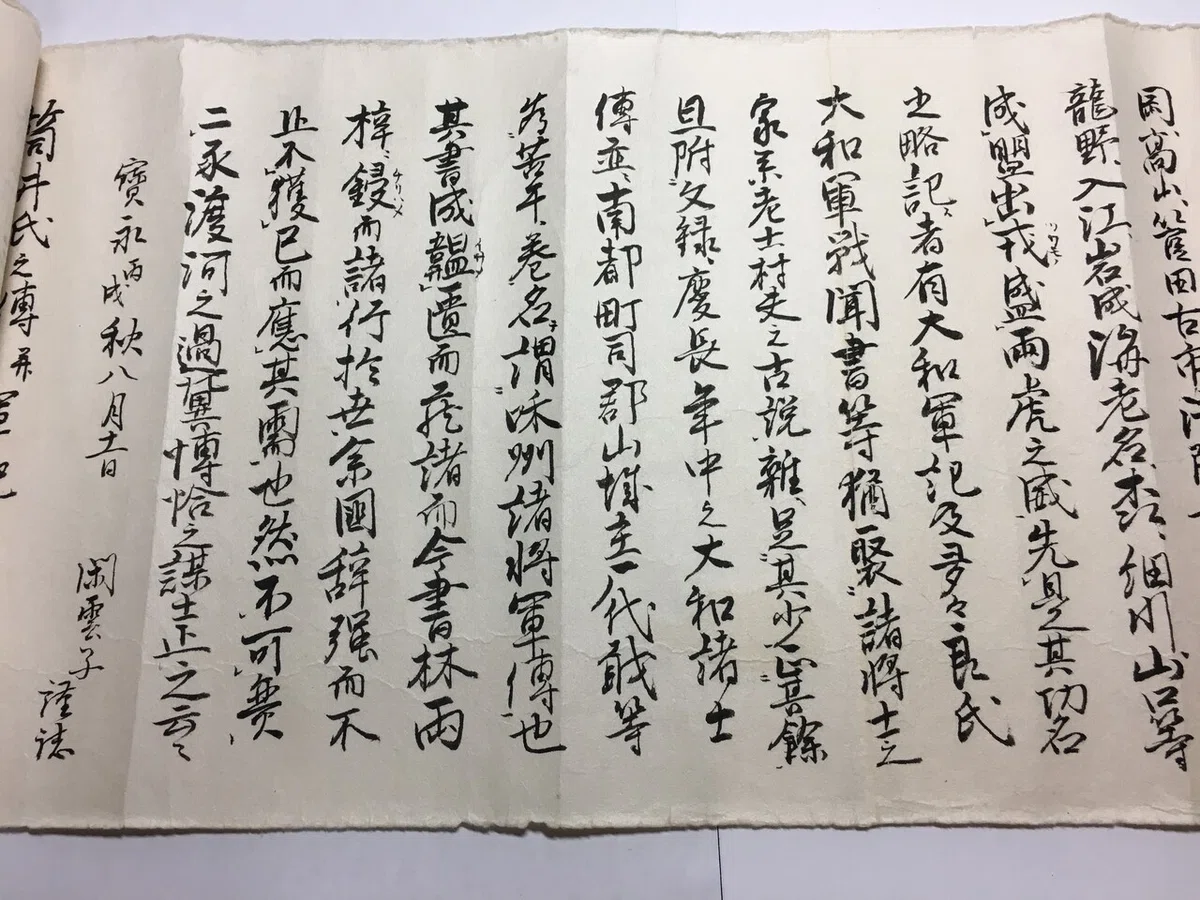 岡高山、筥田古市
龍野、入江岩成海老名、杢、細川山口等
成盟出戎盛両虎之威先是其功名
之略記者有大和軍記及多々良氏
大和軍戦聞書等猶聚諸将士之
家系老士村吏之古説雑足其少正其餘
且附文録慶長年中之大和諸士
傳並南都町司郡山城主一代戢等
為若干巻名謂咊州諸将軍傳也
其書成韞匱而蔵諸而今書林両
梓鋟而諸行於世余固辞强而不
止不獲已而應其需也然不可無
二豕渡河之過冀博恰之謀士正之云々
寶永丙戌秋八月十一日
閑雲子
謹誌
筒井氏之傳并軍記